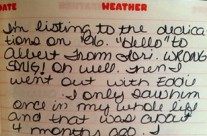 DATE WEATHER
I'm listing to the dedica
tions on 96. "Hello" to
Albert from Lori. WRONG
SNG! Oh well. Then I
went out with Eddie
I only saw him
once in my whole life
and that was about
4 months ago. I